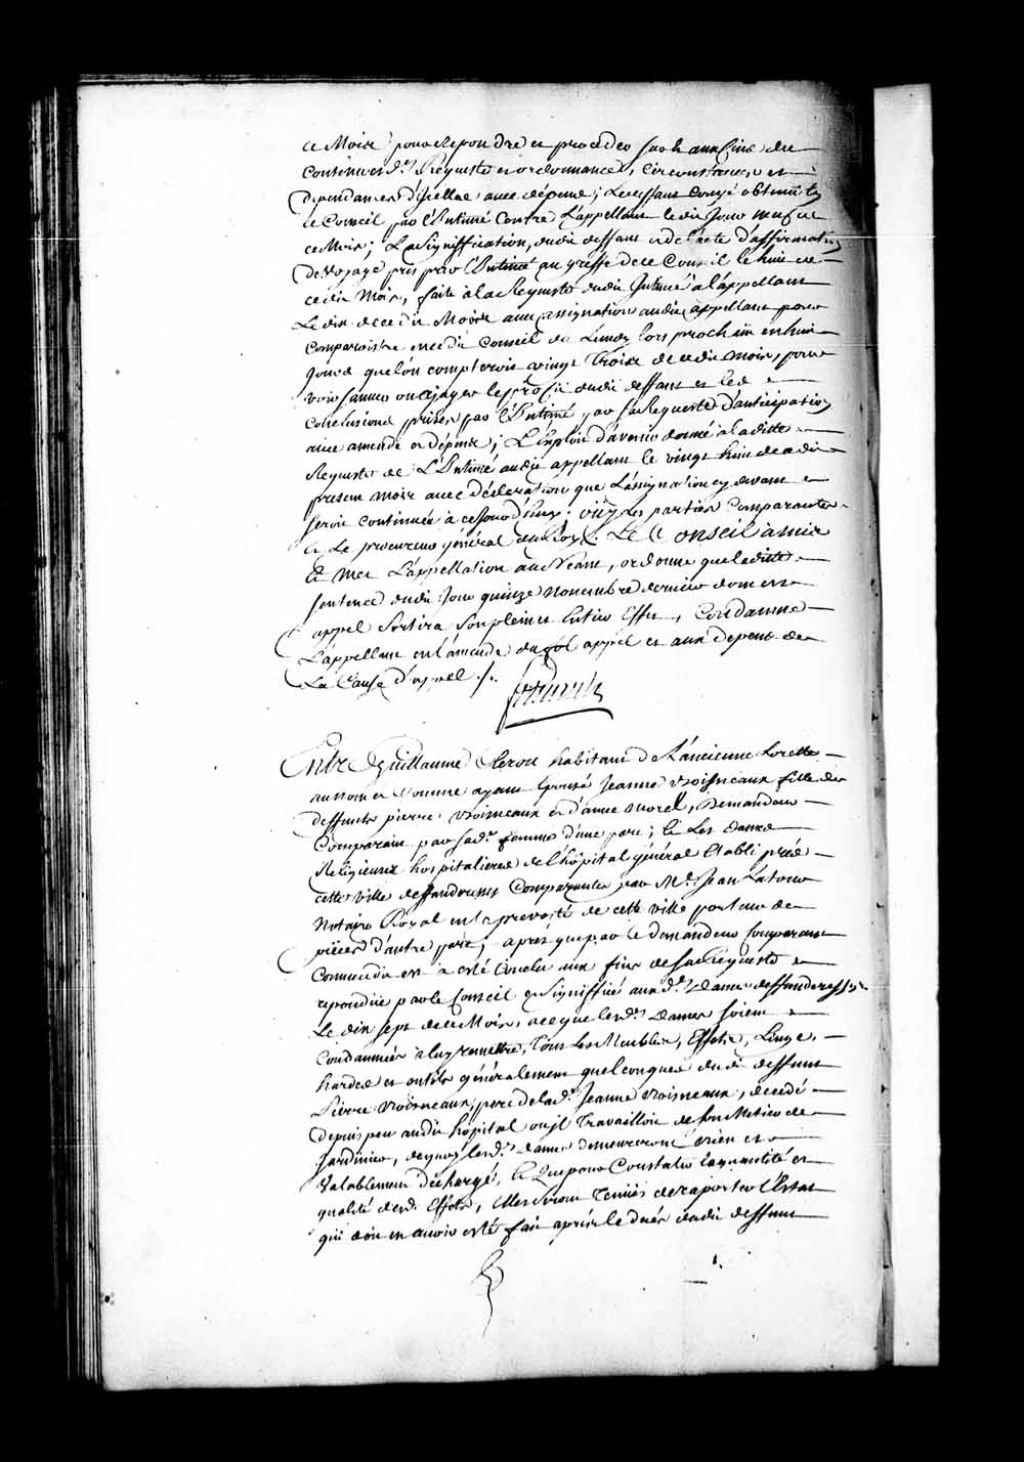 ce Mois pour repondre et proceder sur et aux fins du
contenu esd. Requeste et ordonnance, circonstances et
Dependances d'icelles avec dépens; Le deffaut Congé obtenu en
ce Conseil par l'Intimé Contre L'appellant le dit Jour neuf de
ce Mois; La Signiffication dudit deffaut et de l'acte d'affirmation
De voyage pris par l'Intimé au greffe de ce Conseil le huit de
ce dit Mois, faite a la Requeste dudit Intimé a l'appellant
Le dix de ce dit Mois avec assignation audit appellant pour
Comparoistre en ce dit Conseil du Lundy lors prochain en huit
Jours que lon compteroit vingt Trois de ce dit mois, pour
voir adjuger le proffit dudit deffaut et les
Conclusions prises par l'Intimé par sa Requeste d'anticipation
avec amende et dépens; L'exploit d'avenir donné a la ditte
Requeste de L'Intimé audit appellant le vingt huit de ce dit
present mois avec Declaration que L'assignation cy devant
seroit continuée a ce Jourd'huy: ouy Les parties Comparantes
Et Le procureur général du Roy. Le Conseil a mis
Et Met L'appellation au Neant, ordonne que laditte
Sentence dudit Jour quinze novembre dernier dont est
appel Sortira Son plein et Entier Effet, Condamne
L'appellant en l'amende du fol appel et aux depens de
La Cause d'appel ./.
Entre Guillaume habitant de L'ancienne Lorette
au nom et Comme ayant Epousé Jeanne Voisineaux fille de
deffunts pierre Voisineaux et d'anne morel, Demandeur
Comparant par sad. femme d'une part; Et Les Dames
Religieuses hospitalieres de l'hôpital général Etabli près
cette ville deffenderesses Comparantes par Me. Jean Latour
Notaire Royal en la prevosté de cette ville porteur de
pieces d'autre part, après que par le demandeur Comparant
Comme dit est a esté Conclu aux fins de sa Requeste
repondüe par le Conseil et Signiffiée auxd. Dames deffenderesses
Le dix sept de ce Mois, a ce que lesd. Dames soient
Condamnées a luy remettre, Tous Les Meubles, Effets, Linge,
hardes et outils généralement quelconques dudit deffunt
Pierre Voisineaux, pere de lad. Jeanne Voisineaux, decedé
Depuis peu audit hôpital ou il Travailloit de son Metier de
Jardinier, dequoy lesd. Dames demeureront bien et
Valablement déchargés, Et Que pour Constater la quantité et
qualité desd. Effets, Elles seront Tenües de raporter l'Estat
qui doit en avoir esté fait après le decés dudit deffunt